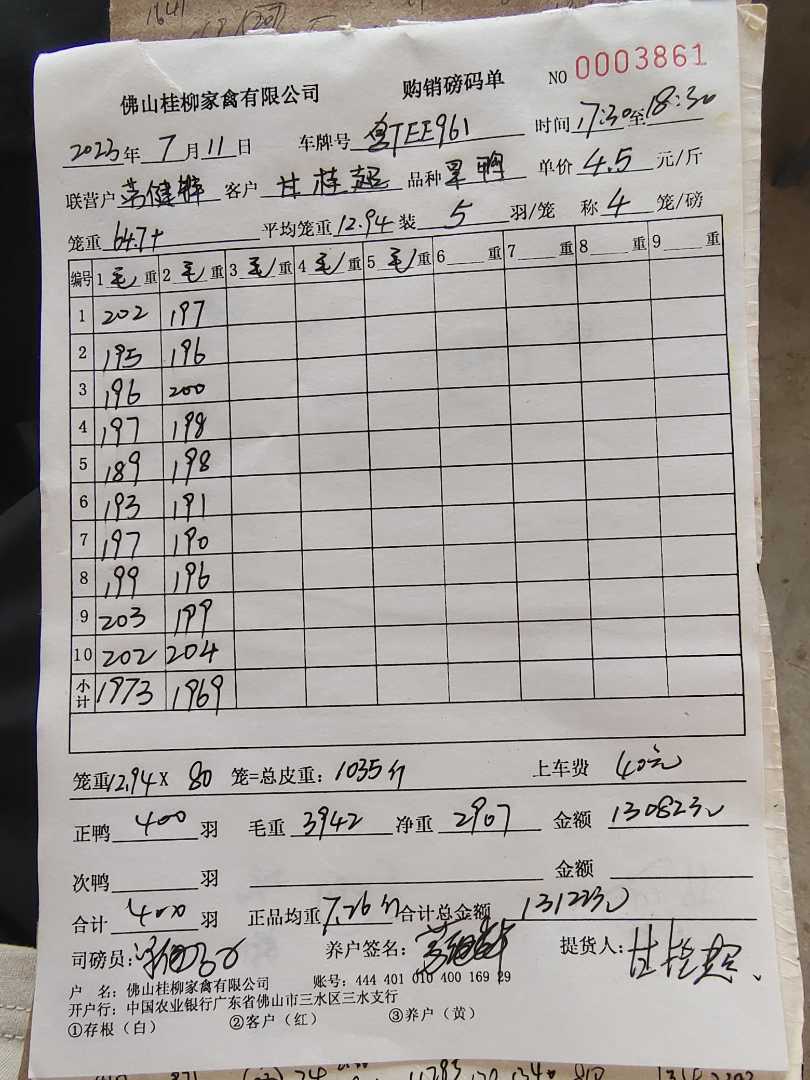 佛山桂柳家禽有限公司 购销磅码单 NO 0003861
2023年 7月11日 车牌号 粤TEE961 时间 17:30至18:30
联营户 客户 甘桂超 品种 旱鸭 单价 4.5 元/斤
笼重 64.7斤 平均笼重 12.94 装 5 羽/笼 称 4 笼/磅
编号 1 毛 重 2 毛 重 3 毛 重 4 毛 重 5 毛 重 6 重 7 重 8 重 9 重
1 202 197
2 195 196
3 196 200
4 197 198
5 189 198
6 193 191
7 197 190
8 199 196
9 203 199
10 202 204
小计 1973 1969
笼重12.94 X 80 笼=总皮重: 1035斤 上车费 40元
正鸭 400 羽 毛重 3942 净重 2907 金额 13082元
次鸭 羽 金额
合计 400 羽 正品均重 7.26斤 合计总金额 13122元
司磅员: 养户签名: 提货人: 甘桂超
户 名: 佛山桂柳家禽有限公司 账号: 444 401 010 400 169 29
开户行: 中国农业银行广东省佛山市三水区三水支行
①存根（白） ②客户（红） ③养户（黄）